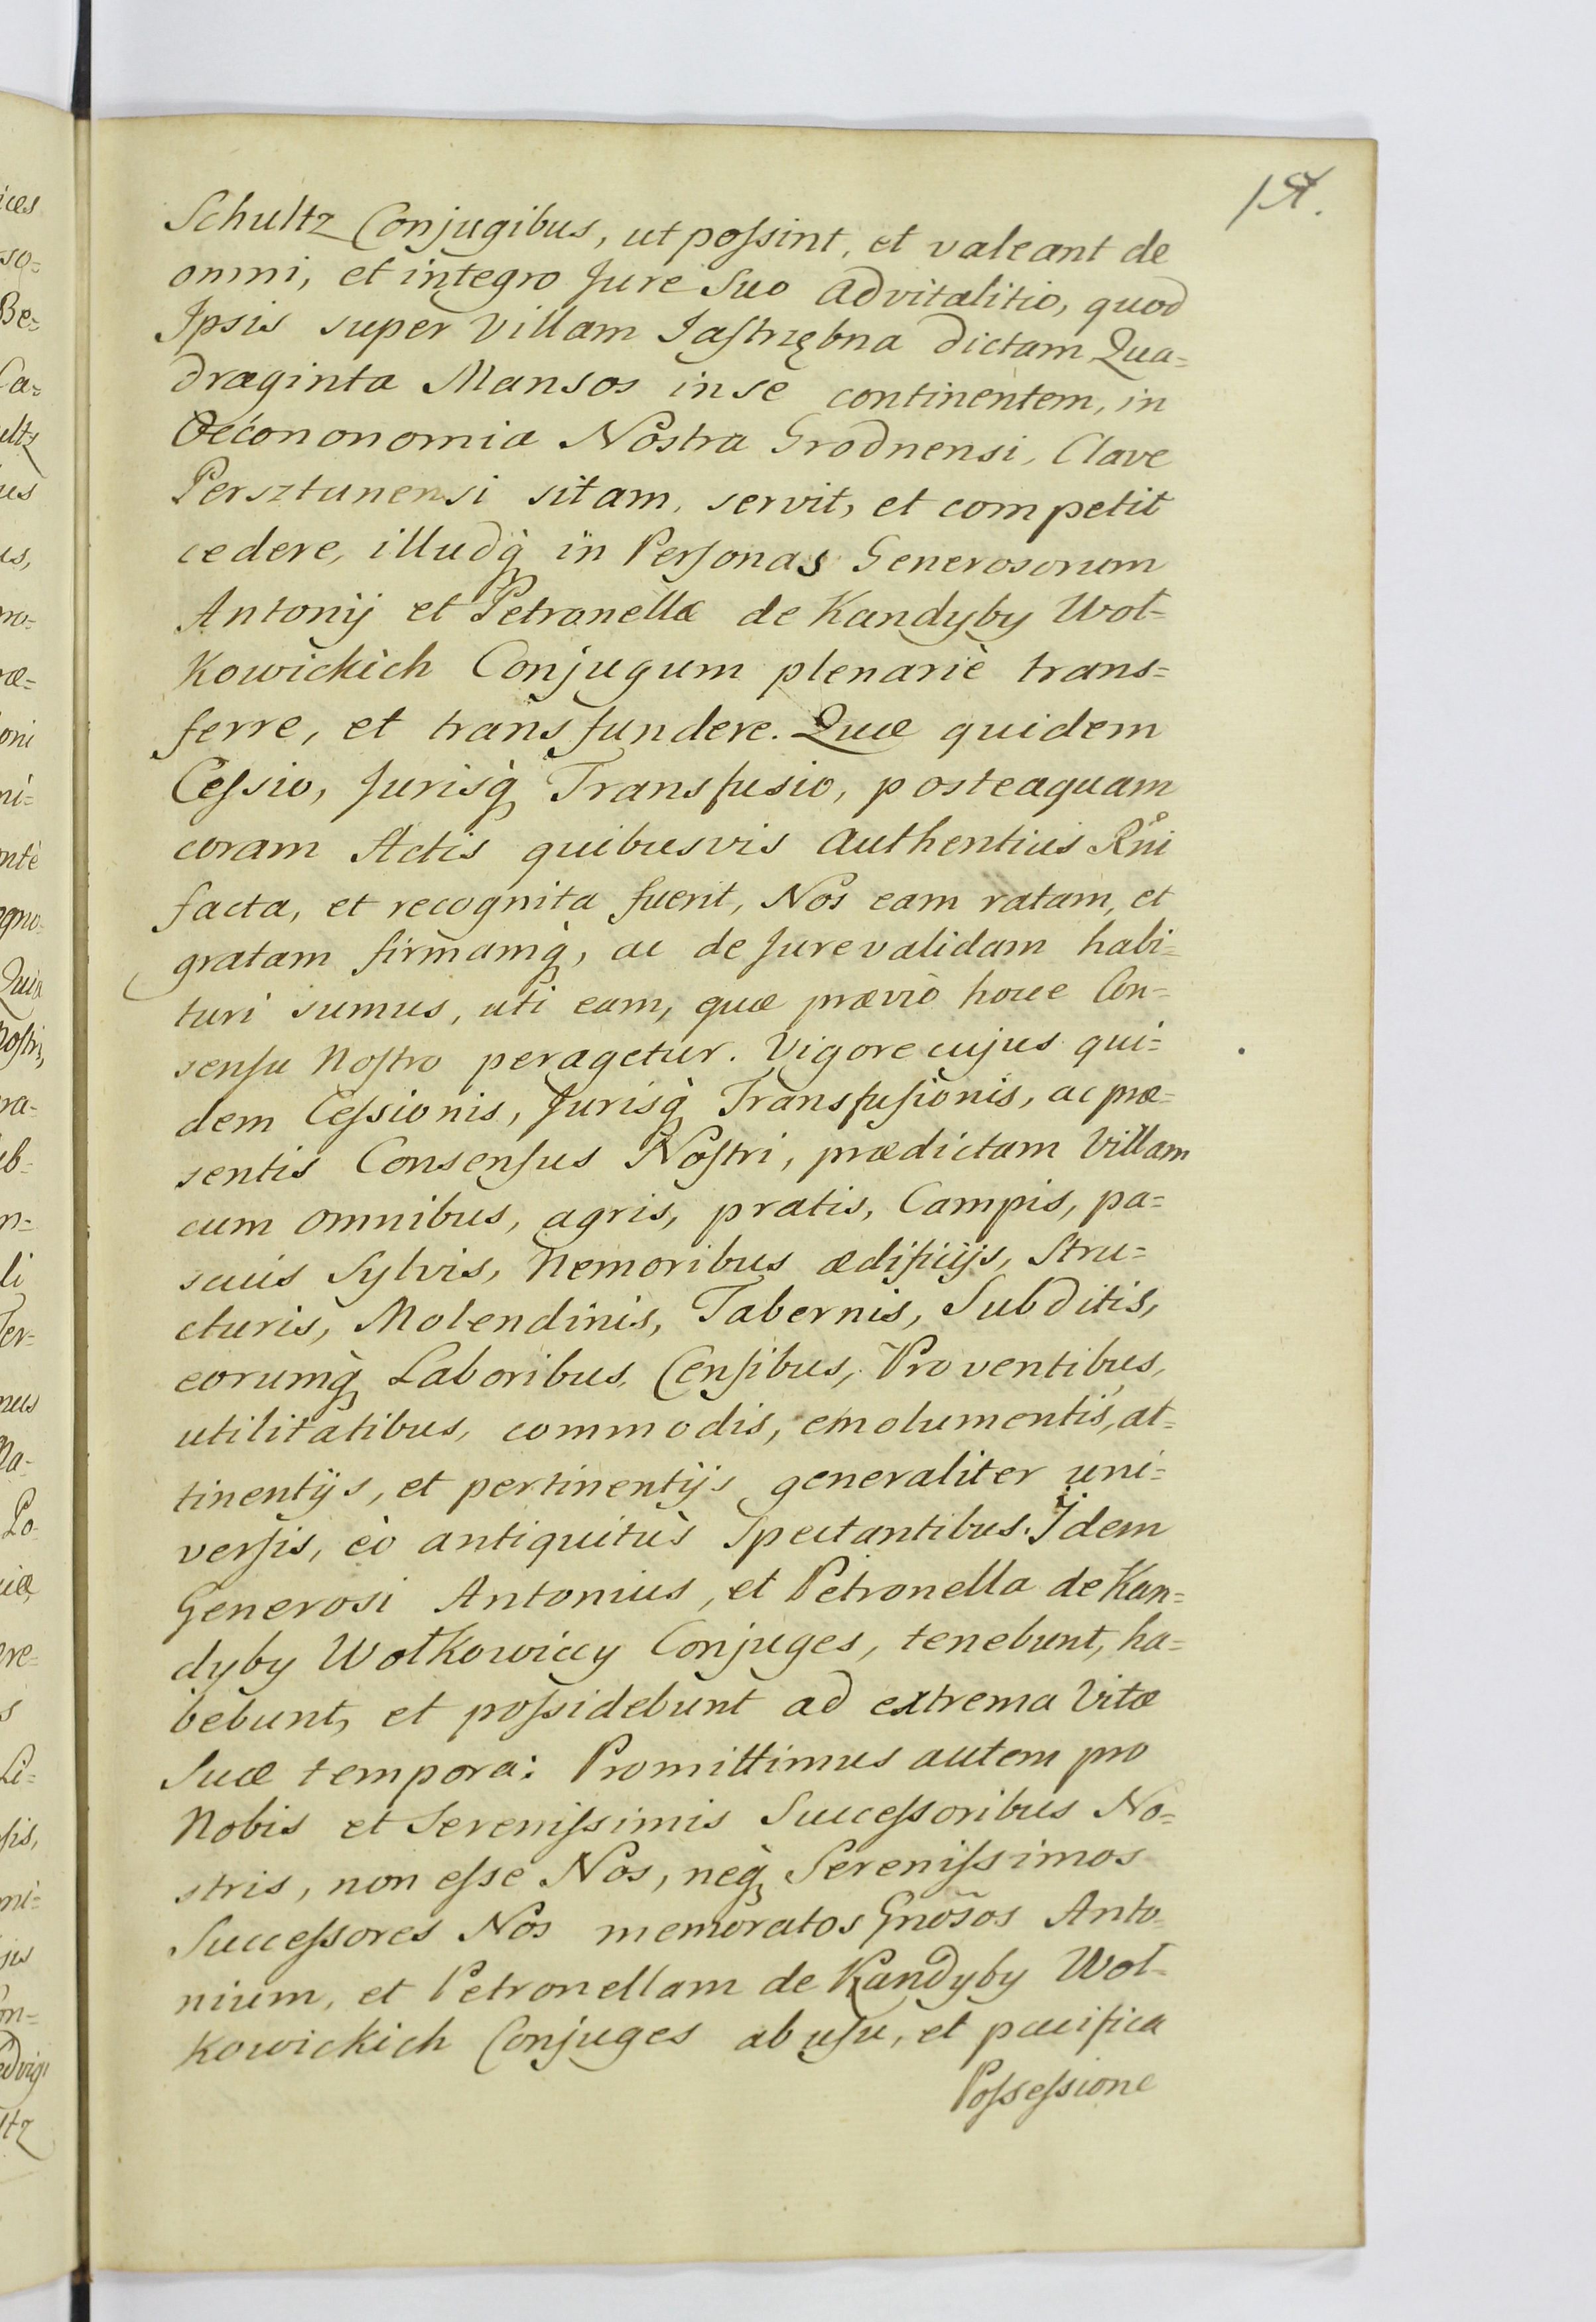 Schultz Conjugibus, ut poſsint, et valeant de
omni, et integro Jure Suo Advitalitio, quod
Ipsis super Villam Jaſtrzębna dictam Qua=
draginta Mansos in se continentem, in
Oecononomia Nostra Grodnensi, Clave
Persztunensi sitam, servit, et competit
cedere, illudq̀ in Perſonas Generosorum
Antonij et Petronellæ de Kandyby Woł=
Kowickich Conjugum plenariè trans=
ferre, et transfundere. Quæ quidem
Ceſsio, Jurisq̀ Transfusio, posteaquam
coram Actis quibusvis Authenticis Rn̊i
facta, et recognita fuerit, Nos eam ratam, et
gratam firmamq̀, ac de Jure validam habi=
turi sumus, uti eam, quæ prævio hocce Con=
senſu Noſtro peragetur. Vigore cujus qui=
dem Ceſsionis, Jurisq̀ Transfuſionis, ac præ=
sentis Consenſus Noſtri, prædictam Villam
cum omnibus, agris, pratis, Campis, pa=
scuis Sylvis, Nemoribus ædificijs, Stru=
cturis, Molendinis, Tabernis, Subditis,
eorumq̀ Laboribus, Cenſibus, Proventibus,
utilitatibus, commodis, emolumentis, at=
tinentijs, et pertinentijs generaliter uni=
verſis, eò antiquitùs Spectantibus. Idem
Generosi Antonius, et Petronella de Kan=
dyby Wołkowiccy Conjuges, tenebunt, ha=
bebunt, et poſsidebunt ad extrema Vitæ
Suæ tempora: Promittimus autem pro
Nobis et Sereniſsimis Succeſsoribus No=
stris, non eſse Nos, neq̀ Sereniſsimos
Succeſsores Nos memoratos Gnõsos Anto=
nium, et Petronellam de Kandyby Woł=
Kowickich Conjuges ab uſu, et pacifica
Poſseſsione